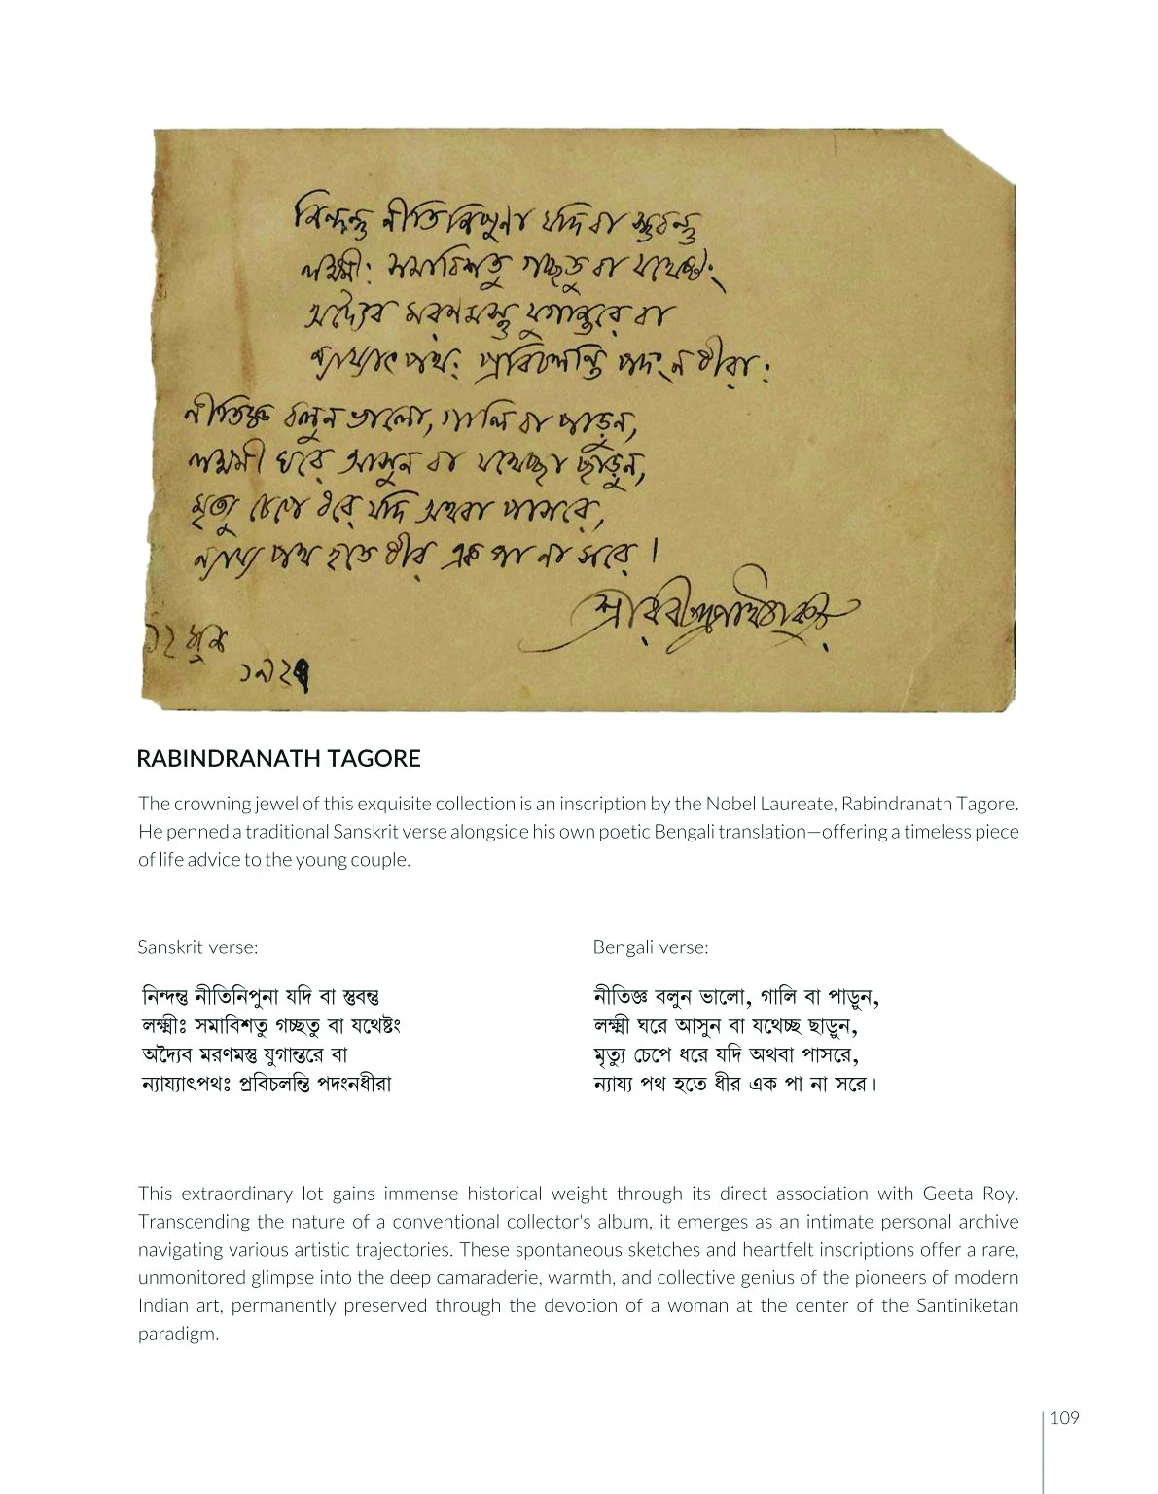 নিন্দন্তু নীতিনিপুনা যদি বা স্তুবন্তু
লক্ষ্মীঃ সমাবিশতু গচ্ছতু বা যথেষ্টং
অদ্যৈব মরণমস্তু যুগান্তরে বা
ন্যায্যাৎ পথঃ প্রবিচলন্তি পদং ন ধীরাঃ
নীতিজ্ঞ বলুন ভালো, গালি বা পাড়ুন,
লক্ষ্মী ঘরে আসুন বা যথেচ্ছা ছাড়ুন,
মৃত্যু চেপে ধরে যদি অথবা পাসরে,
ন্যায্য পথ হতে ধীর এক পা না সরে।
শ্রীরবীন্দ্রনাথ ঠাকুর
১২
RABINDRANATH TAGORE
The crowning jewel of this exquisite collection is an inscription by the Nobel Laureate, Rabindranath Tagore.
He penned a traditional Sanskrit verse alongside his own poetic Bengali translation—offering a timeless piece
of life advice to the young couple.
Sanskrit verse:
নিন্দন্তু নীতিনিপুনা যদি বা স্তুবন্তু
লক্ষ্মীঃ সমাবিশতু গচ্ছতু বা যথেষ্টং
অদ্যৈব মরণমস্তু যুগান্তরে বা
ন্যায্যাৎপথঃ প্রবিচলন্তি পদংনধীরা
Bengali verse:
নীতিজ্ঞ বলুন ভালো, গালি বা পাড়ুন,
লক্ষ্মী ঘরে আসুন বা যথেচ্ছ ছাড়ুন,
মৃত্যু চেপে ধরে যদি অথবা পাসরে,
ন্যায্য পথ হতে ধীর এক পা না সরে।
This extraordinary lot gains immense historical weight through its direct association with Geeta Roy.
Transcending the nature of a conventional collector's album, it emerges as an intimate personal archive
navigating various artistic trajectories. These spontaneous sketches and heartfelt inscriptions offer a rare,
unmonitored glimpse into the deep camaraderie, warmth, and collective genius of the pioneers of modern
Indian art, permanently preserved through the devotion of a woman at the center of the Santiniketan
paradigm.
109